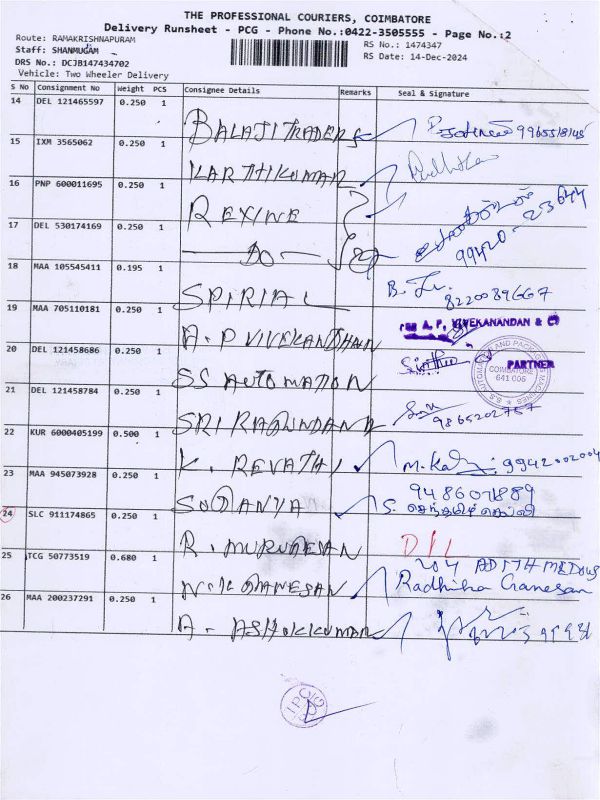 THE PROFESSIONAL COURIERS, COIMBATORE
Delivery Runsheet - PCG - Phone No.:0422-3505555 - Page No.:2
Route: RAMAKRISHNAPURAM
RS No.: 1474347
Staff: SHANMUGAM
RS Date: 14-Dec-2024
DRS No.: DCJB147434702
Vehicle: Two Wheeler Delivery
S No Consignment No Weight PCS Consignee Details Remarks Seal & Signature
14 DEL 121465597 0.250 1 BALAJI TRADERS 9965518145
15 IXM 3565062 0.250 1 KARTHIKUMAR Radhika
16 PNP 600011695 0.250 1 REXINE
17 DEL 530174169 0.250 1 DO 99420-23644
18 MAA 105545411 0.195 1 SPIRIAL 8220089667
19 MAA 705110181 0.250 1 A. P VIVEKANDHAIN A. P. VIVEKANANDAN & CO
PARTNER
20 DEL 121458686 0.250 1 SS AUTOMATION S.S. AUTOMATION AND PACKAGING MACHINES COIMBATORE 641 006
21 DEL 121458784 0.250 1 SRI RAGUNDAN 9865202757
22 KUR 6000405199 0.500 1 K. REVATHI 9942002004
23 MAA 945073928 0.250 1 SUGANYA 9486071889
S. செந்தமிழ் செல்வி
24 SLC 911174865 0.250 1 R. MURUGESAN D/L
25 TCG 50773519 0.680 1 N.K GANESAN 204 ADITH MEDOWS
Radhika Ganesan
26 MAA 200237291 0.250 1 A. ASHOKKUMAR